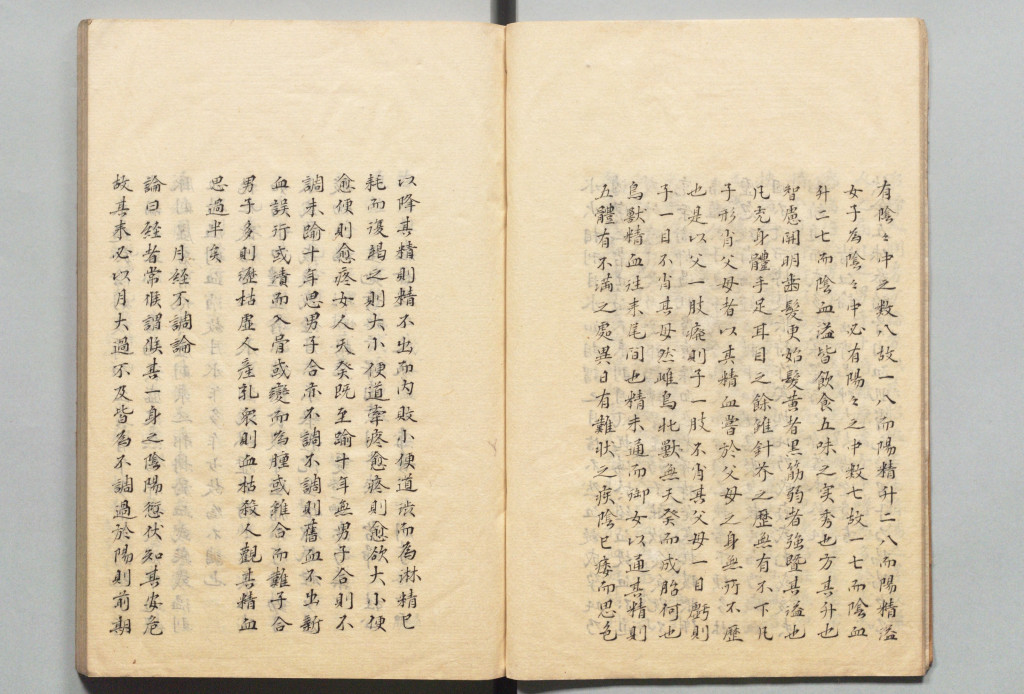 有陰々中之数八故一八而陽精升二八而陽精溢
女子為陰々中必有陽々之中数七故一七而陰血
升二七而陰血溢皆飲食五味之実秀也方其升也
智慮開明歯髪更始髪黄者黒筋弱者強曁其溢也
凡充身體手足耳目之餘雖針芥之歴無有不下凡
子形肖父母者以其精血嘗於父母之身無所不歴
也是以父一肢癈則子一肢不肖其父母一目虧則
子一目不肖其母然雌鳥牝獣無天癸而成胎何也
鳥獣精血往来尾間也精未通而御女以通其精則
五體有不満之處異日有難状之疾陰已痿而思色
以降其精則精不出而内敗小便道渋而為淋精已
耗而復竭之則大小便道牽疼愈疼則愈欲大小便
愈便則愈疼女人天癸既至踰十年無男子合則不
調未踰十年思男子合亦不調不調則舊血不出新
血誤行或漬而入骨或變而為腫或雖合而難子合
男子多則瀝枯虚人産乳衆則血枯殺人觀其精血
思過半矣
月經不調論
論曰經者常候謂候其一身之陰陽愆伏知其安危
故其来必以月大過不及皆為不調過於陽則前期